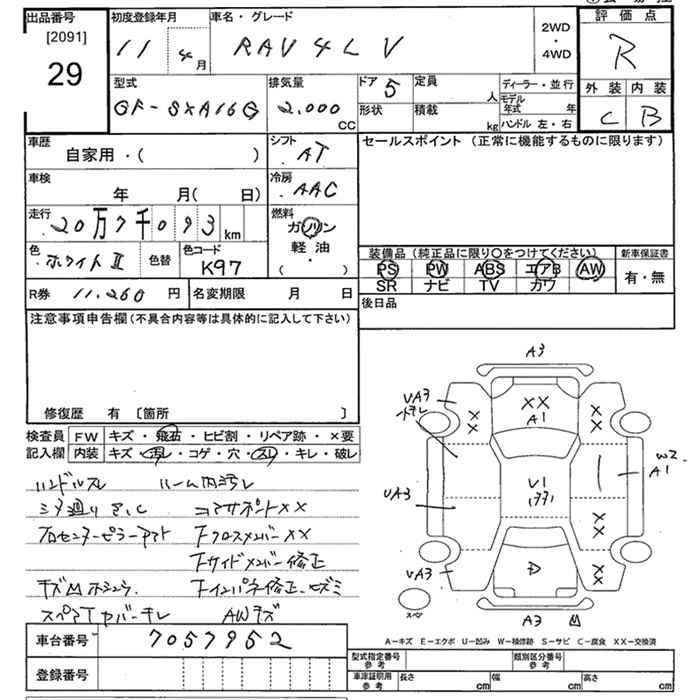 出品番号 初度登録年月 車名・グレード 2WD ・ 4WD 評価点
[2091]
29 11 4月 RAV4L V R
型式 排気量 ドア 5 定員 人 ディーラー・並行 外装 内装
GF-SXA16G 2.000 CC 形状 積載 kg モデル年式 年 C B
ハンドル 左・右
車歴 シフト セールスポイント (正常に機能するものに限ります)
自家用・( ) AT
車検 冷房
年 月(日) AAC
走行 燃料
20万7千093 km ガソリン
色 色替 色コード 軽油 装備品(純正品に限り○をつけてください) 新車保証書
ホワイトⅡ K97 ・( ) PS PW ABS エアB AW 有・無
SR ナビ TV カワ
R券 11.260 円 名変期限 月 日 後日品
注意事項申告欄(不具合内容等は具体的に記入して下さい)
修復歴 有 〔箇所 〕
検査員 FW キズ・飛石・ヒビ割・リペア跡・×要
記入欄 内装 キズ・汚レ・コゲ・穴・スレ・キレ・破レ
ハンドルスレ ルーム内汚レ
コアサポートXX
FクロスメンバーXX
Fサイドメンバー修正
Fインパネ修正
スペアTカバーキレ AWキズ
A3
UA3
XX
A1
XX
XX
UA3
U1
W2
A1
XX
UA3
D
XX
スペア
A3
A-キズ E-エクボ U-凹み W-補修跡 S-サビ C-腐食 XX-交換済
車台番号 7057952
登録番号
型式指定番号 参考 類別区分番号 参考
車庫証明用 参考 長さ cm 幅 cm 高さ cm